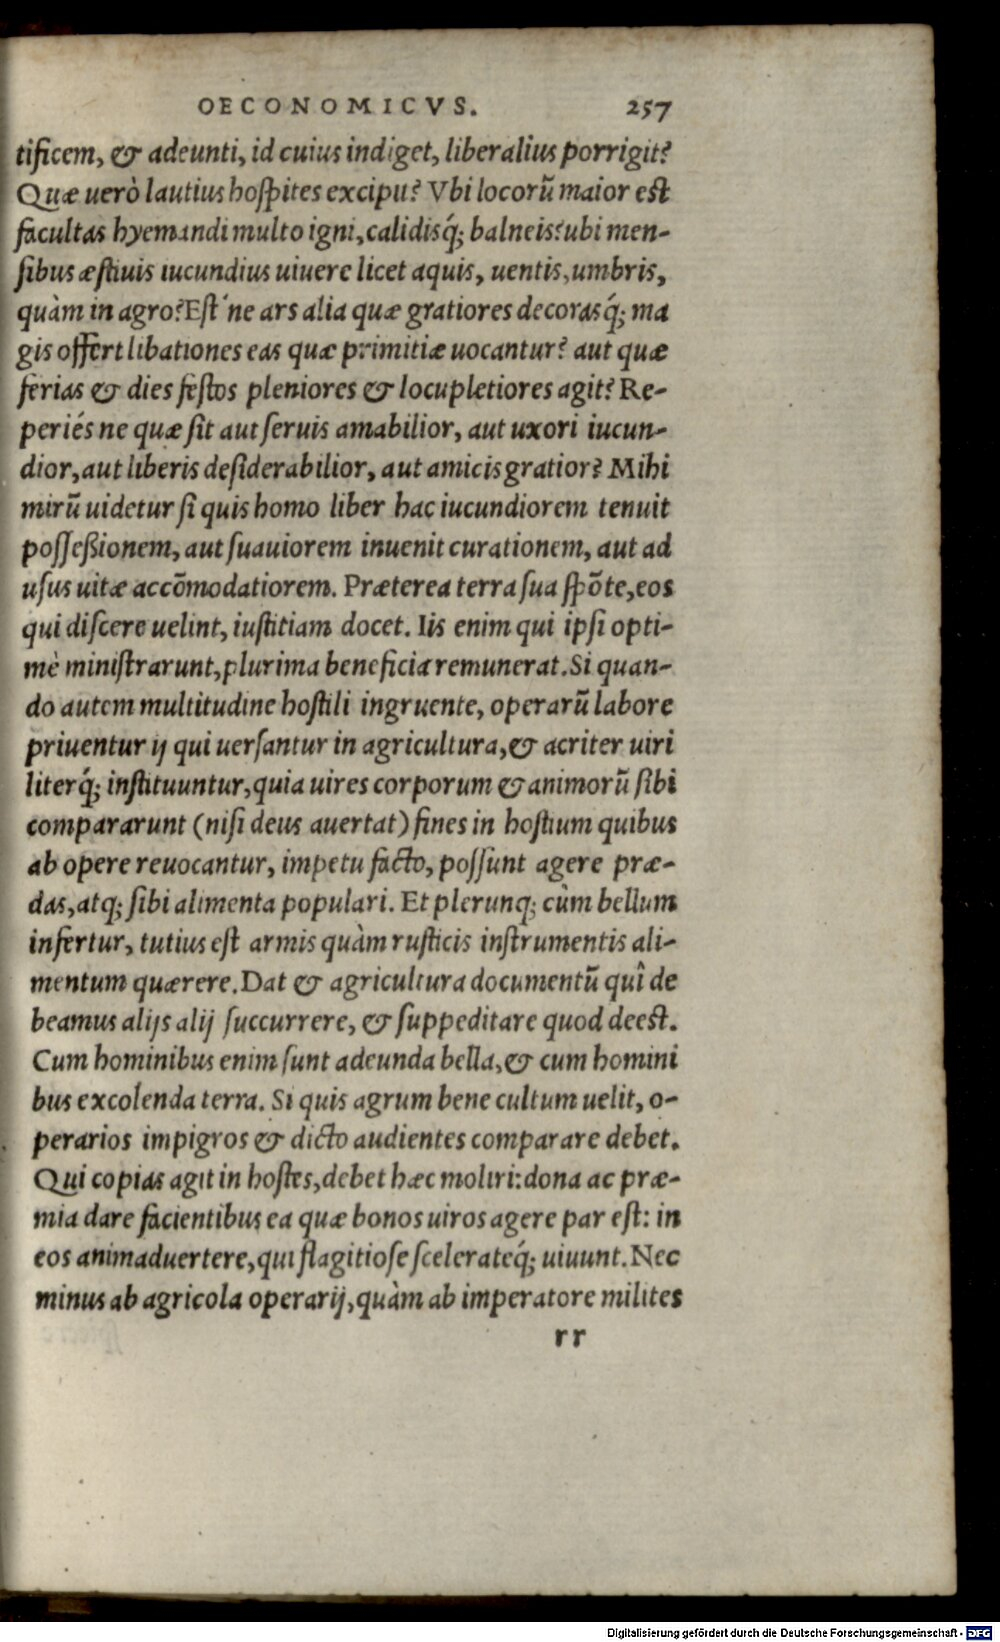 OECONOMICVS. 257
tificem, & adeunti, id cuius indiget, liberalius porrigit?
Quæ uerò lautius hospites excipit? Vbi locorũ maior est
facultas hyemandi multo igni, calidisq́; balneis? ubi men-
sibus æstiuis iucundius uiuere licet aquis, uentis, umbris,
quàm in agro? Est'ne ars alia quæ gratiores decorasq́; ma
gis offert libationes eas quæ primitiæ uocantur? aut quæ
ferias & dies festos pleniores & locupletiores agit? Re-
periés ne quæ sit aut seruis amabilior, aut uxori iucun-
dior, aut liberis desiderabilior, aut amicis gratior? Mihi
mirũ uidetur si quis homo liber hac iucundiorem tenuit
posseßionem, aut suauiorem inuenit curationem, aut ad
usus uitæ accõmodatiorem. Præterea terra sua spõte, eos
qui discere uelint, iustitiam docet. Iis enim qui ipsi opti-
mè ministrarunt, plurima beneficia remunerat. Si quan-
do autem multitudine hostili ingruente, operarũ labore
priuentur ij qui uersantur in agricultura, & acriter uiri
literq́; instituuntur, quia uires corporum & animorũ sibi
compararunt (nisi deus auertat) fines in hostium quibus
ab opere reuocantur, impetu facto, possunt agere præ-
das, atq; sibi alimenta populari. Et plerunq; cùm bellum
infertur, tutius est armis quàm rusticis instrumentis ali-
mentum quærere. Dat & agricultura documentũ quî de
beamus alijs alij succurrere, & suppeditare quod deest.
Cum hominibus enim sunt adeunda bella, & cum homini
bus excolenda terra. Si quis agrum bene cultum uelit, o-
perarios impigros & dicto audientes comparare debet.
Qui copias agit in hostes, debet hæc moliri: dona ac præ-
mia dare facientibus ea quæ bonos uiros agere par est: in
eos animaduertere, qui flagitiose scelerateq́; uiuunt. Nec
minus ab agricola operarij, quàm ab imperatore milites
rr
Digitalisierung gefördert durch die Deutsche Forschungsgemeinschaft - DFG